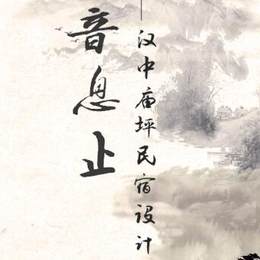 音息止
—汉中庙坪民宿设计